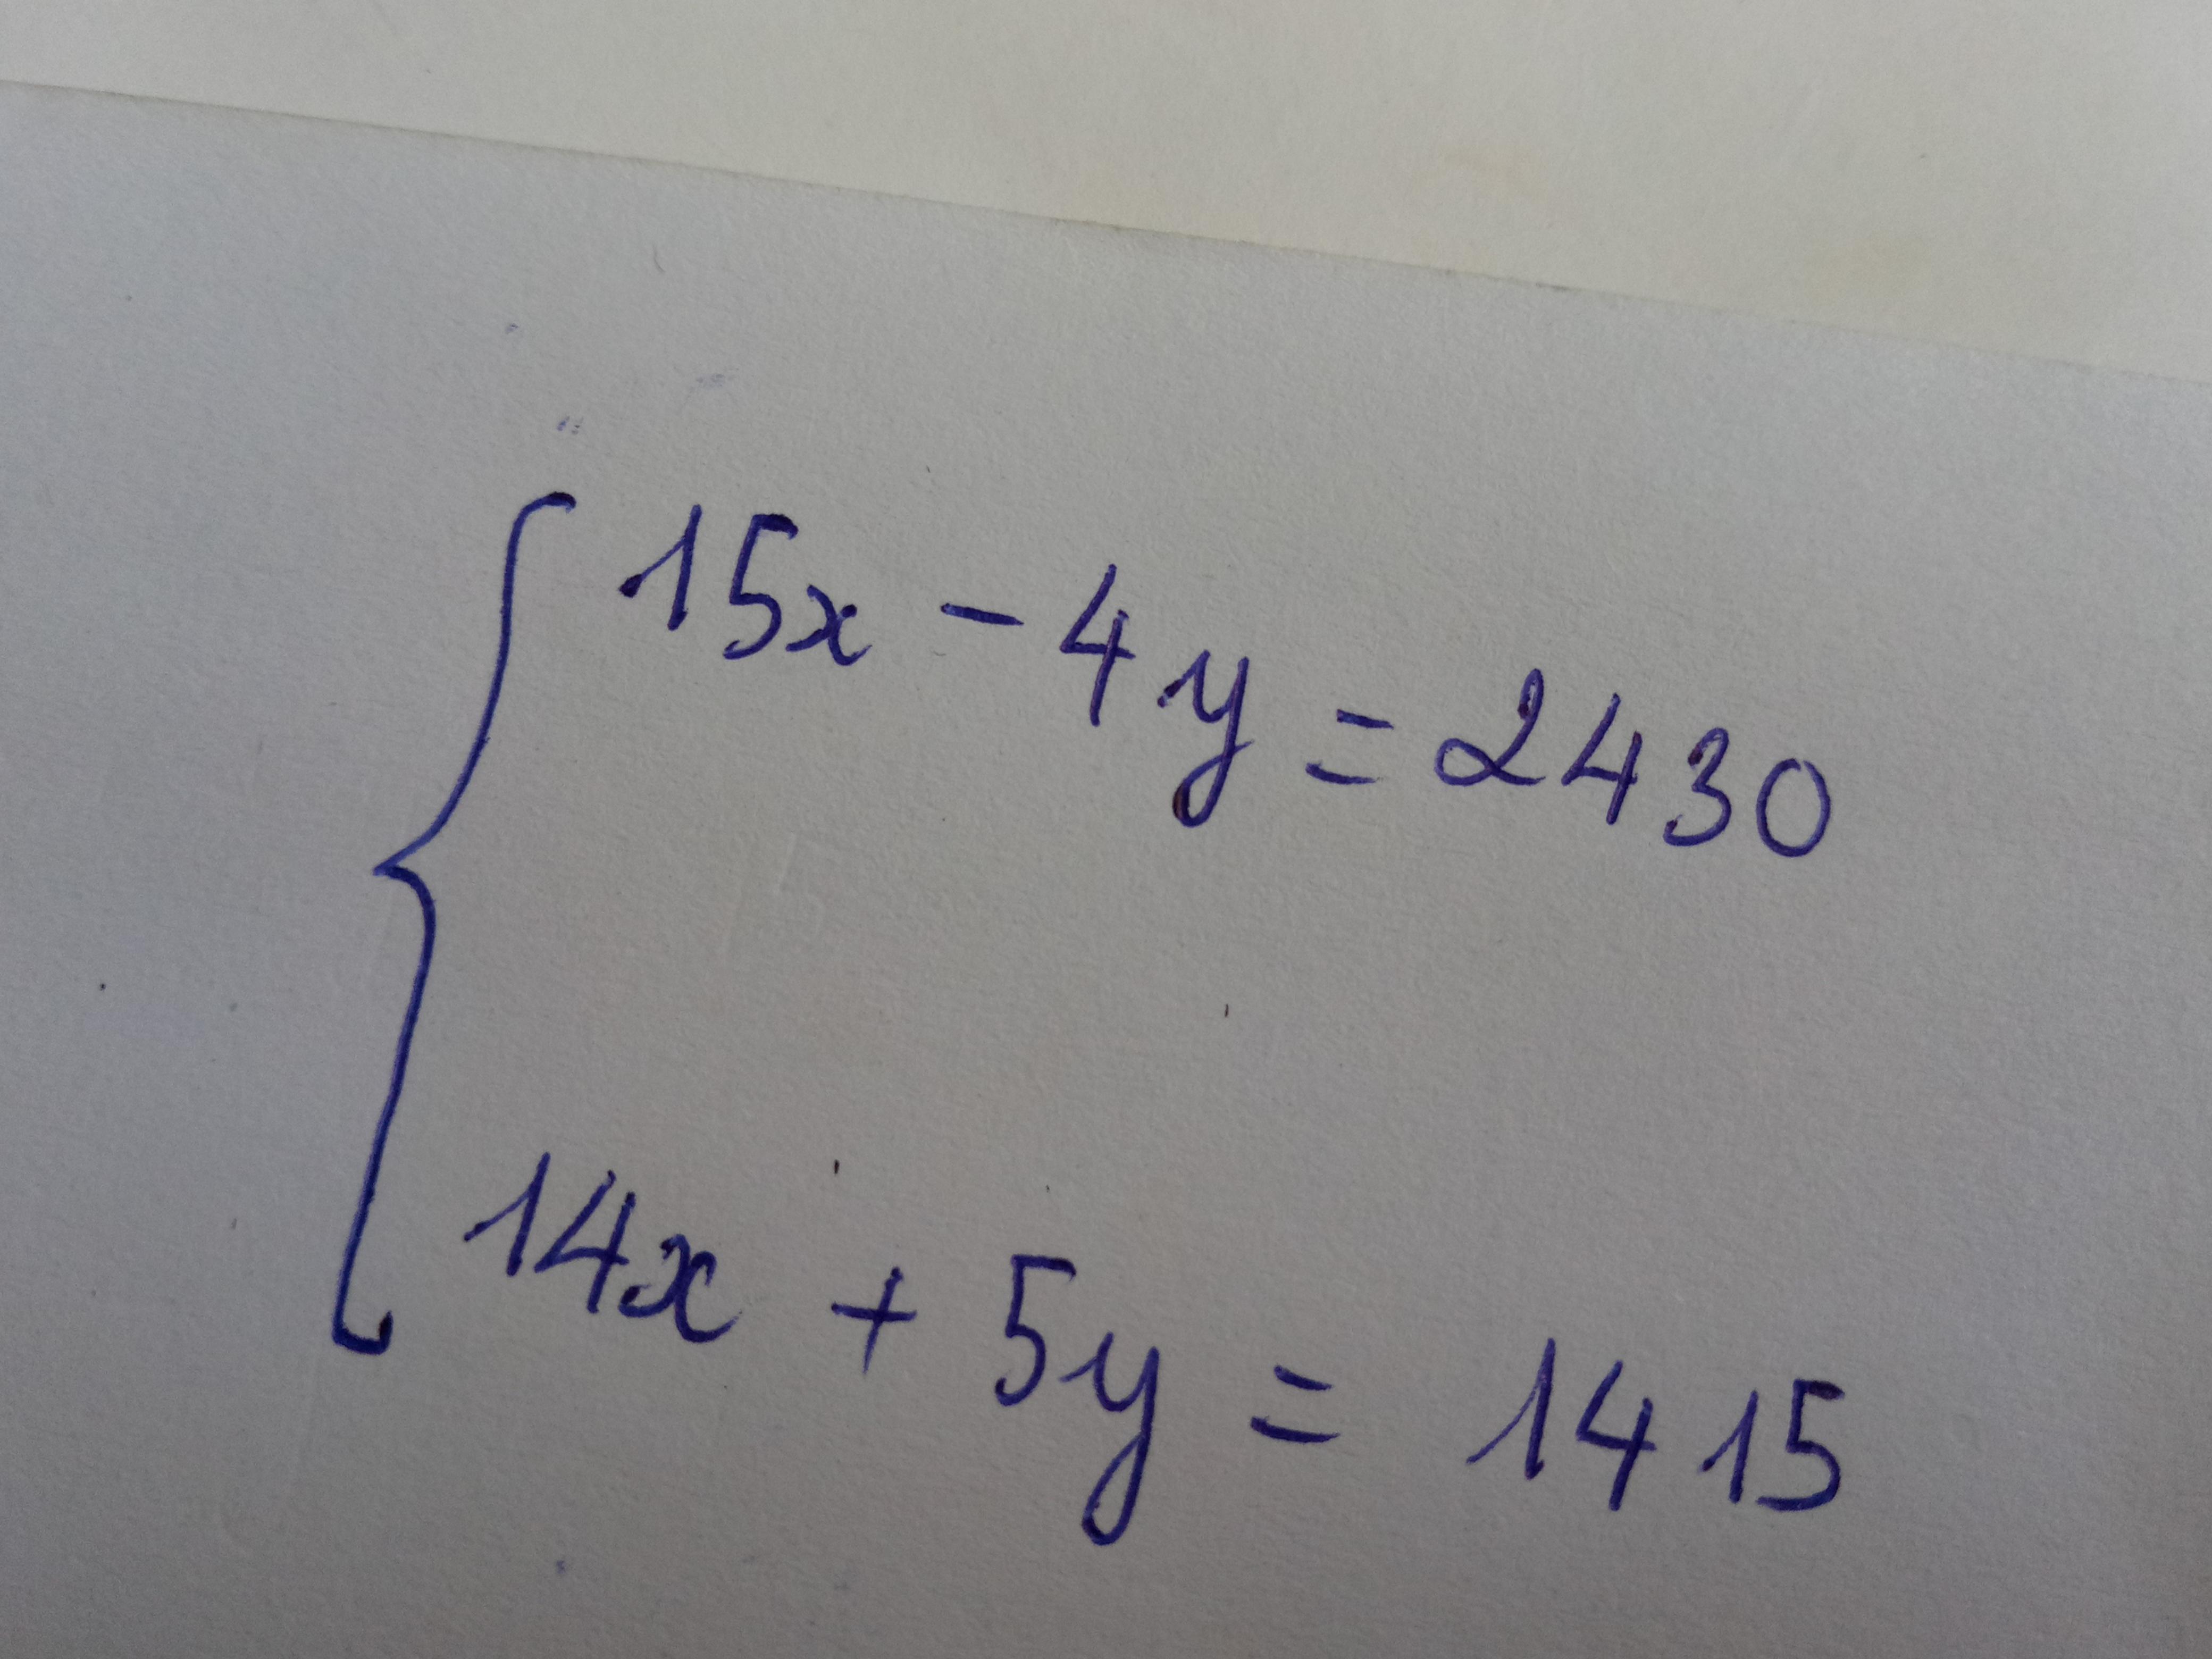 15x - 4y = 2430
14x + 5y = 1415